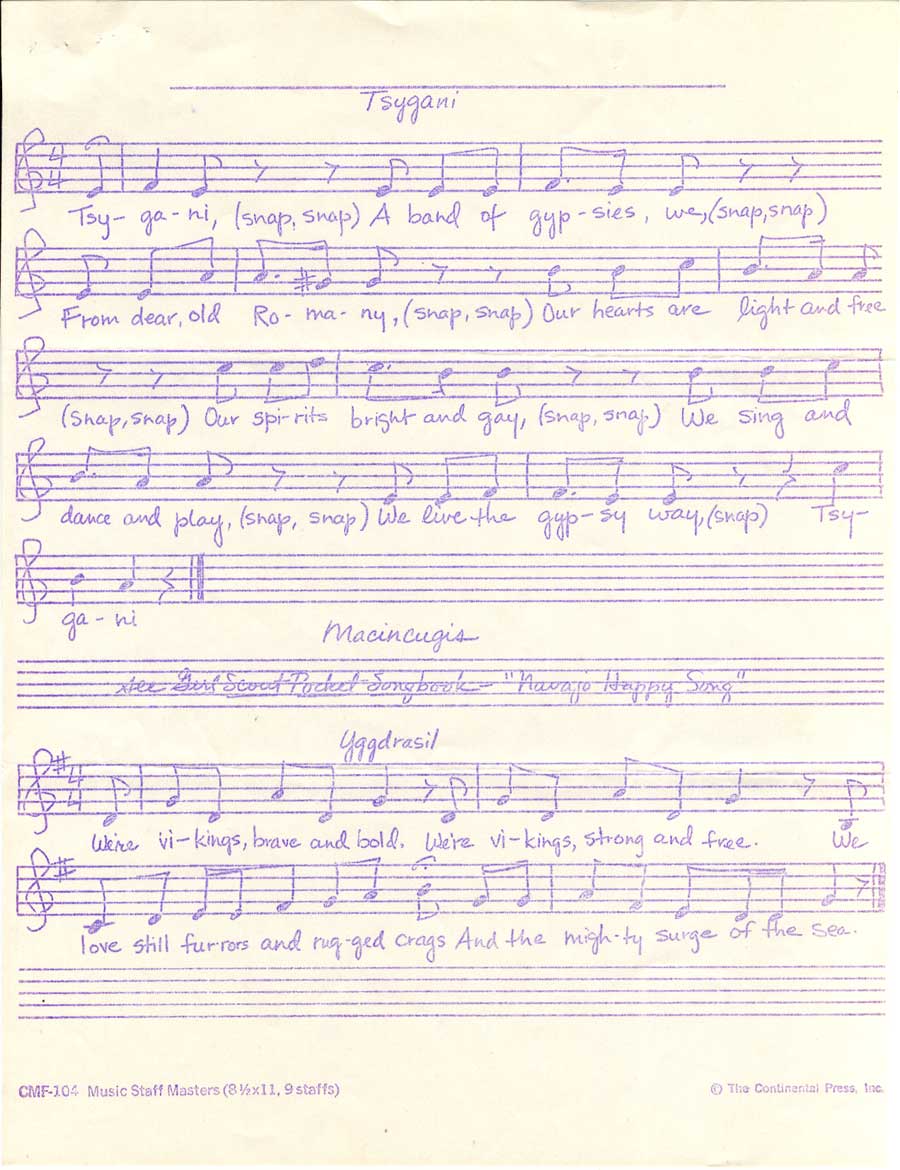 Tsygani
4
4
Tsy- ga-ni, (snap, snap) A band of gyp-sies, we, (snap, snap)
From dear, old Ro-ma-ny, (snap, snap) Our hearts are light and free
(snap, snap) Our spi-rits bright and gay, (snap, snap) We sing and
dance and play, (snap, snap) We live the gyp-sy way, (snap) Tsy-
ga-ni
Macincugis
see Girl Scout Pocket Songbook - "Navajo Happy Song"
Yggdrasil
4
4
We're vi-kings, brave and bold. We're vi-kings, strong and free. We
love still furrors and rug-ged crags And the migh-ty surge of the sea.
CMF-104 Music Staff Masters (8½x11, 9 staffs) © The Continental Press, Inc.